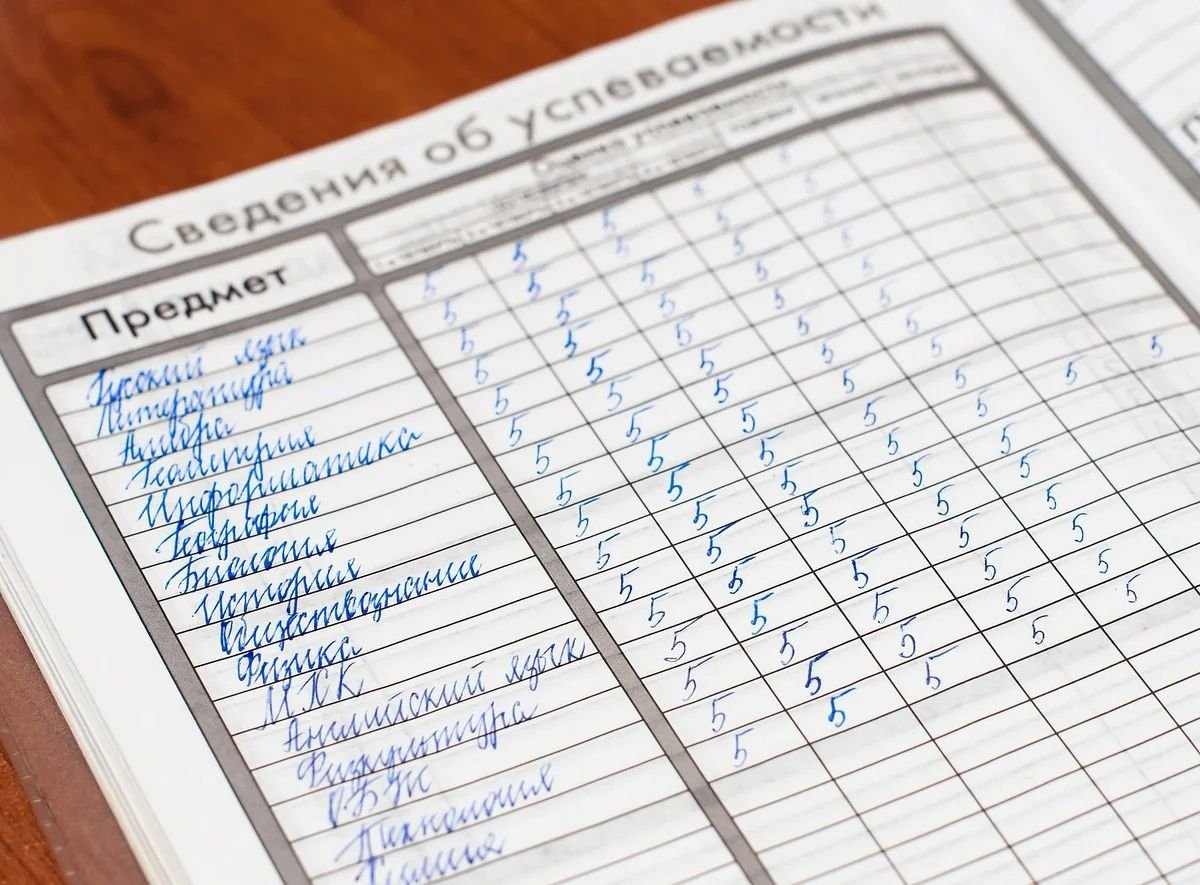 Сведения об успеваемости
Предмет
Оценка успеваемости
Русский язык 5 5 5 5 5
Литература 5 5 5 5 5
Алгебра 5 5 5 5 5
Геометрия 5 5 5 5 5
Информатика 5 5 5 5 5
География 5 5 5 5 5
Биология 5 5 5 5 5
История 5 5 5 5 5
Обществознание 5 5 5 5 5
Физика 5 5 5 5 5
МХК 5 5 5 5 5 5 5
Английский язык 5 5 5 5 5
Физкультура 5 5 5 5 5
ОБЖ 5 5 5 5 5
Технология 5 5 5 5 5
Химия 5 5 5 5 5